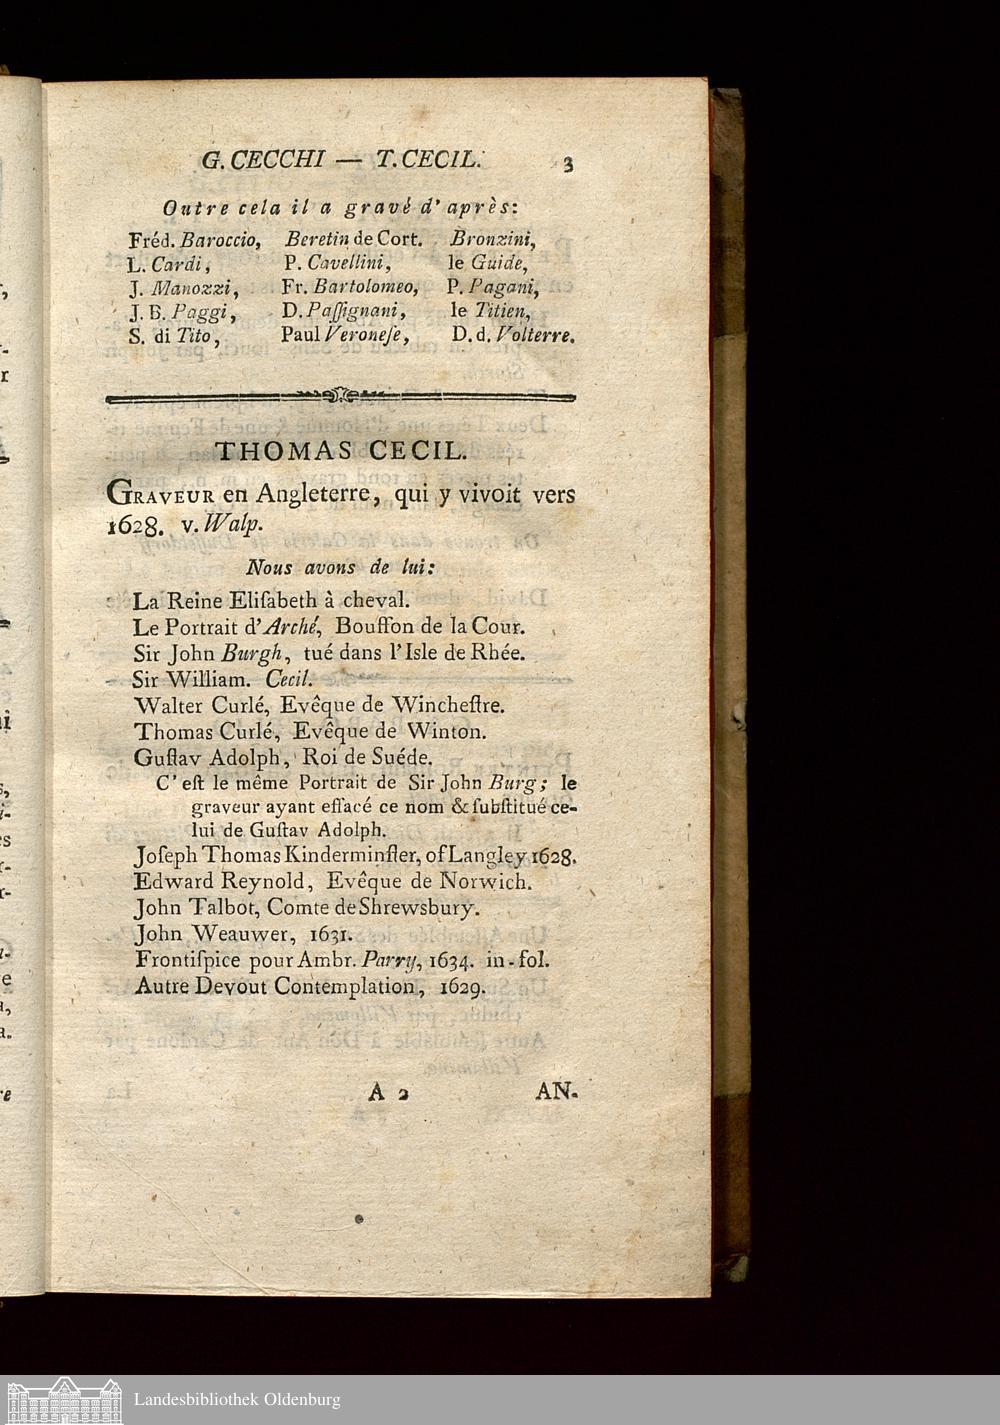 G. CECCHI — T. CECIL. 3
Outre cela il a gravé d'après:
Fréd. Baroccio, Beretin de Cort. Bronzini,
L. Cardi, P. Cavellini, le Guide,
J. Manozzi, Fr. Bartolomeo, P. Pagani,
J. B. Paggi, D. Paſſignani, le Titien,
S. di Tito, Paul Veroneſe, D. d. Volterre.
THOMAS CECIL.
GRAVEUR en Angleterre, qui y vivoit vers
1628. v. Walp.
Nous avons de lui:
La Reine Eliſabeth à cheval.
Le Portrait d'Arché, Bouffon de la Cour.
Sir John Burgh, tué dans l'Isle de Rhée.
Sir William. Cecil.
Walter Curlé, Evêque de Wincheſtre.
Thomas Curlé, Evêque de Winton.
Guſtav Adolph, Roi de Suéde.
C'eſt le même Portrait de Sir John Burg; le
graveur ayant effacé ce nom & ſubſtitué ce-
lui de Guſtav Adolph.
Joſeph Thomas Kinderminſter, of Langley 1628.
Edward Reynold, Evêque de Norwich.
John Talbot, Comte de Shrewsbury.
John Weauwer, 1631.
Frontiſpice pour Ambr. Parry, 1634. in-fol.
Autre Devout Contemplation, 1629.
A 2 AN.
Landesbibliothek Oldenburg